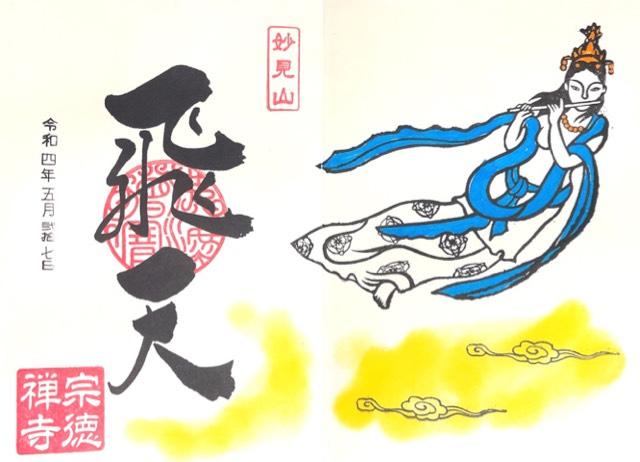 妙見山
飛天
令和四年五月弐拾七日
宗徳
禅寺